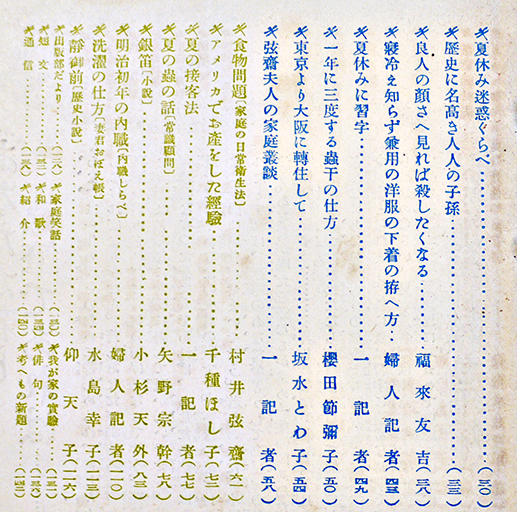 夏休み迷惑ぐらべ……(三〇)
歴史に名高き人人の子孫……(三三)
良人の顔さへ見れば殺したくなる……福來友吉(三八)
寢冷え知らず兼用の洋服の下着の拵へ方……婦人記者(四三)
夏休みに習字……一記者(四九)
一年に三度する蟲干の仕方……櫻田節彌子(五〇)
東京より大阪に轉住して……坂水とわ子(五四)
弦齋夫人の家庭叢談……一記者(五八)
食物問題〔家庭の日常衛生法〕……村井弦齋(六一)
アメリカでお產をした經驗……千種ほし子(七二)
夏の接客法……一記者(七七)
夏の蟲の話〔常識顧問〕……矢野宗幹(七八)
銀笛〔小說〕……小杉天外(八三)
明治初年の內職〔內職しらべ〕……婦人記者(一一〇)
洗濯の仕方〔妻君おぼえ帳〕……水島幸子(一一三)
靜御前〔歷史小說〕……仰天子(一一六)
出版部だより……(一二八)
家庭笑話……(一三〇)
我が家の實驗……(一三一)
短文……(一三二)
和歌……(一三四)
俳句……(一三六)
通信……(一三八)
紹介……(一四〇)
考へもの新題……(一四二)